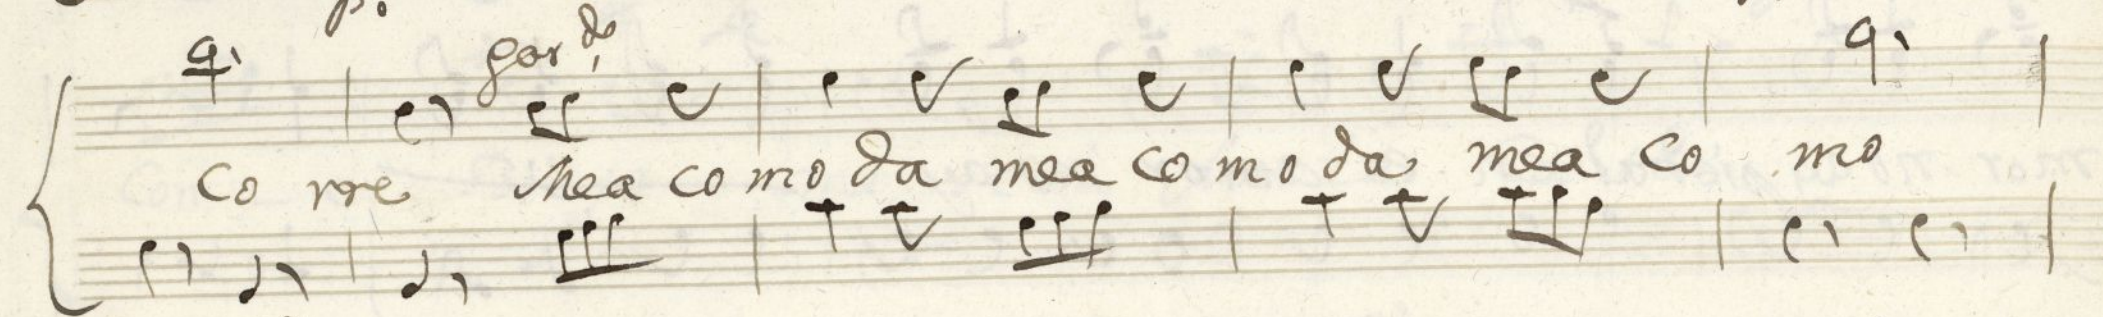 po
gar do
Co rre Mea co mo da mea co mo da mea co mo